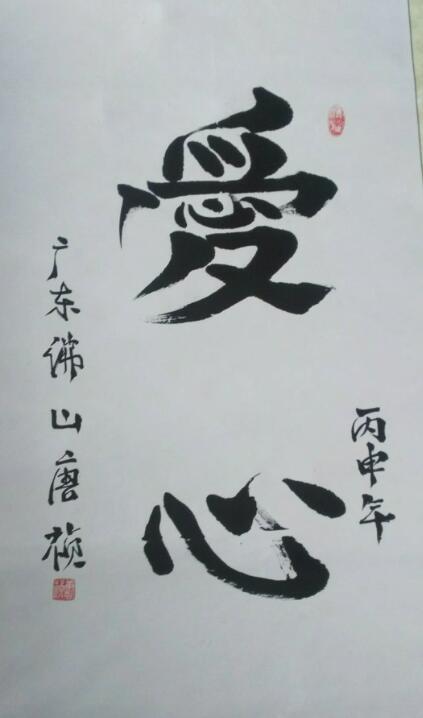 愛心
丙申年
广东佛山唐祯